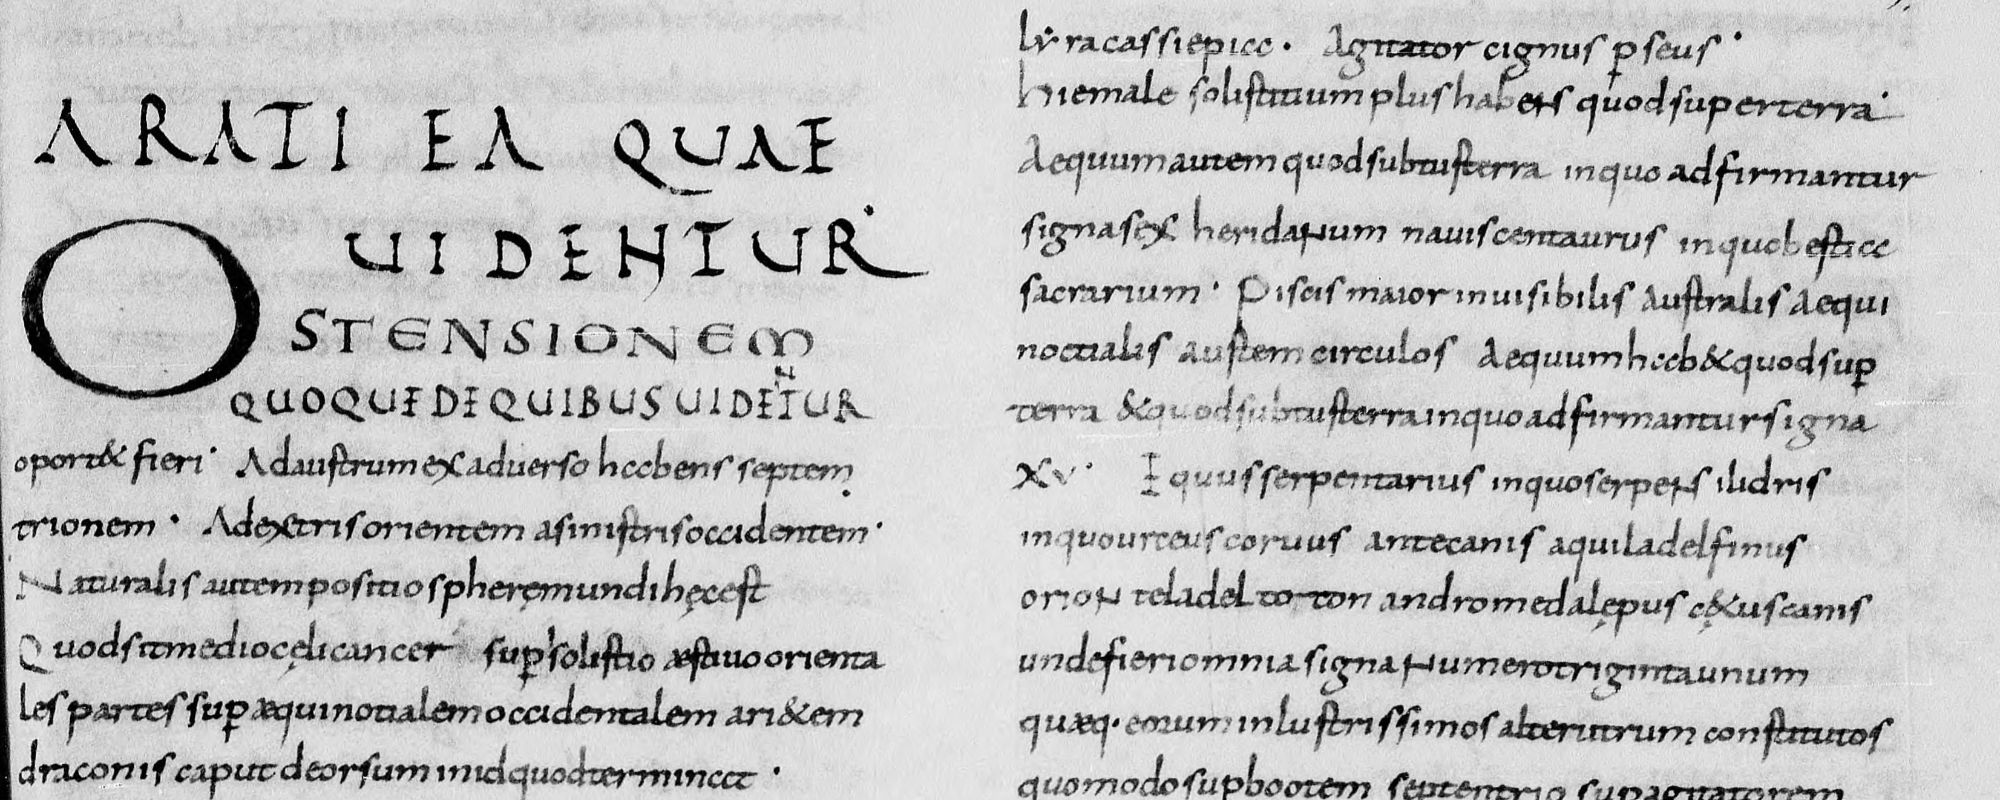 ARATI EA QUAE
UIDENTUR
OSTENSIONEM
QUOQUE DE QUIBUS UIDENTUR
oport& fieri· Ad austrum ex aduerso habens septem
trionem· Ad extris orientem asinistris occidentem·
Naturalis autem positio spherę mundi hęc est
Quod sit medio cęli cancer sup solistio æstiuo orienta
les partes sup æquinotialem occidentalem ari&em
draconis caput deorsum in id quod terminat·
lyra cassiepia· Agitator cignus pseus·
hiemale solistitium plus habens quod super terra·
Aequum autem quod subtus terra in quo adfirmantur
signa sex heridanum nauis centaurus in quo bestia
sacrarium· Piscis maior inuisibilis australis aequi
noctialis austem circulos Aequum hab& quod sup
terra & quod subtus terra in quo adfirmantur signa
xv· Equus serpentarius in quo serpens ilidris
in quo urteus coruus antecanis aquila delfinus
orion tela deltoton andromeda lępus c&us canis
unde fieri omnia signa numero triginta unum
quæq· eorum inlustrissimos alterutrum constitutos
quomodo sup bootem septentrio sup agitatorem